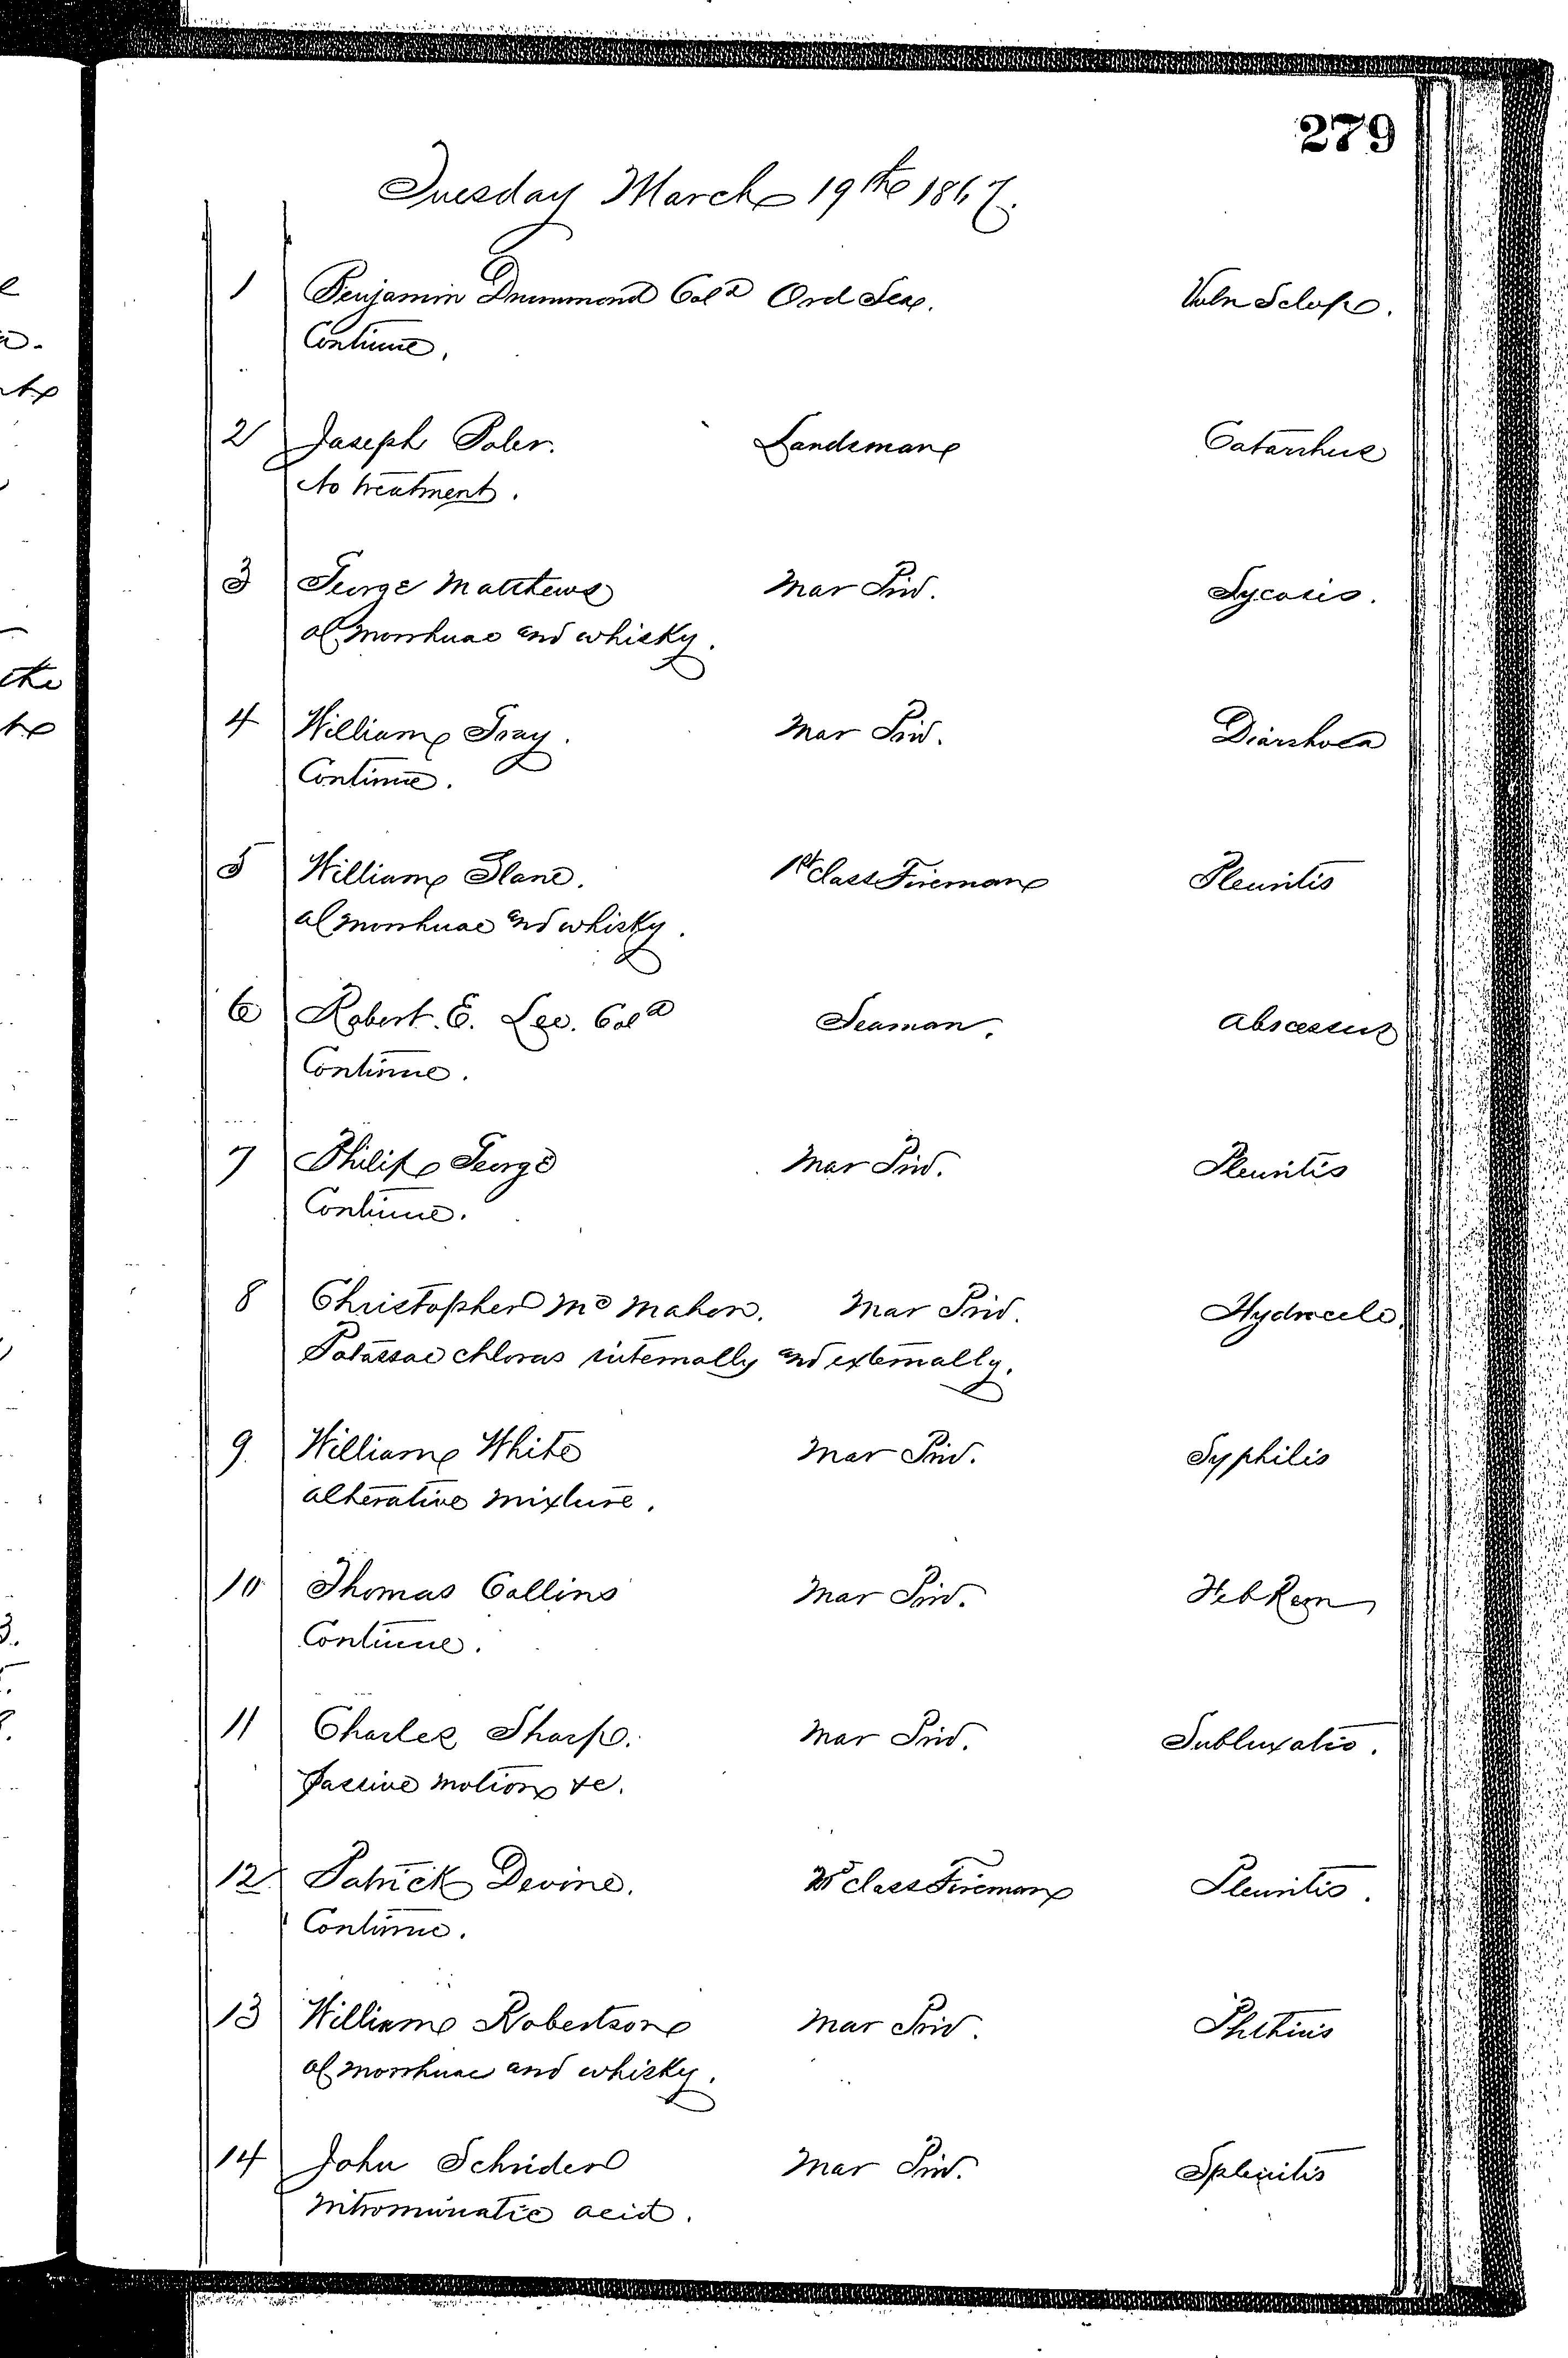 279
Tuesday March 19th 1867.
1 Benjamin Drummond Cold Ord Sea. Vuln Sclop.
Continue.
2 Joseph Poler. Landsman Catarrhus
No treatment.
3 George Matthews Mar Priv. Sycosis.
Ol Morrhuae and whisky.
4 William Gray. Mar Priv. Diarrhoea
Continue.
5 William Slane. 1st Class Fireman Pleuritis
Ol Morrhuae and whisky.
6 Robert. E. Lee. Cold Seaman. Abscessus
Continue.
7 Philip George Mar Priv. Pleuritis
Continue.
8 Christopher Mc Mahon. Mar Priv. Hydrocele.
Potassae chloras internally and externally.
9 William White Mar Priv. Syphilis
Alterative mixture.
10 Thomas Collins Mar Priv. Feb Rem
Continue.
11 Charles Sharp. Mar Priv. Subluxatio.
Passive motion &c.
12 Patrick Devine. 2d Class Fireman Pleuritis.
Continue.
13 William Robertson Mar Priv. Phthisis
Ol Morrhuae and whisky.
14 John Schrider Mar Priv. Splenitis
Nitromuriatic acid.
the